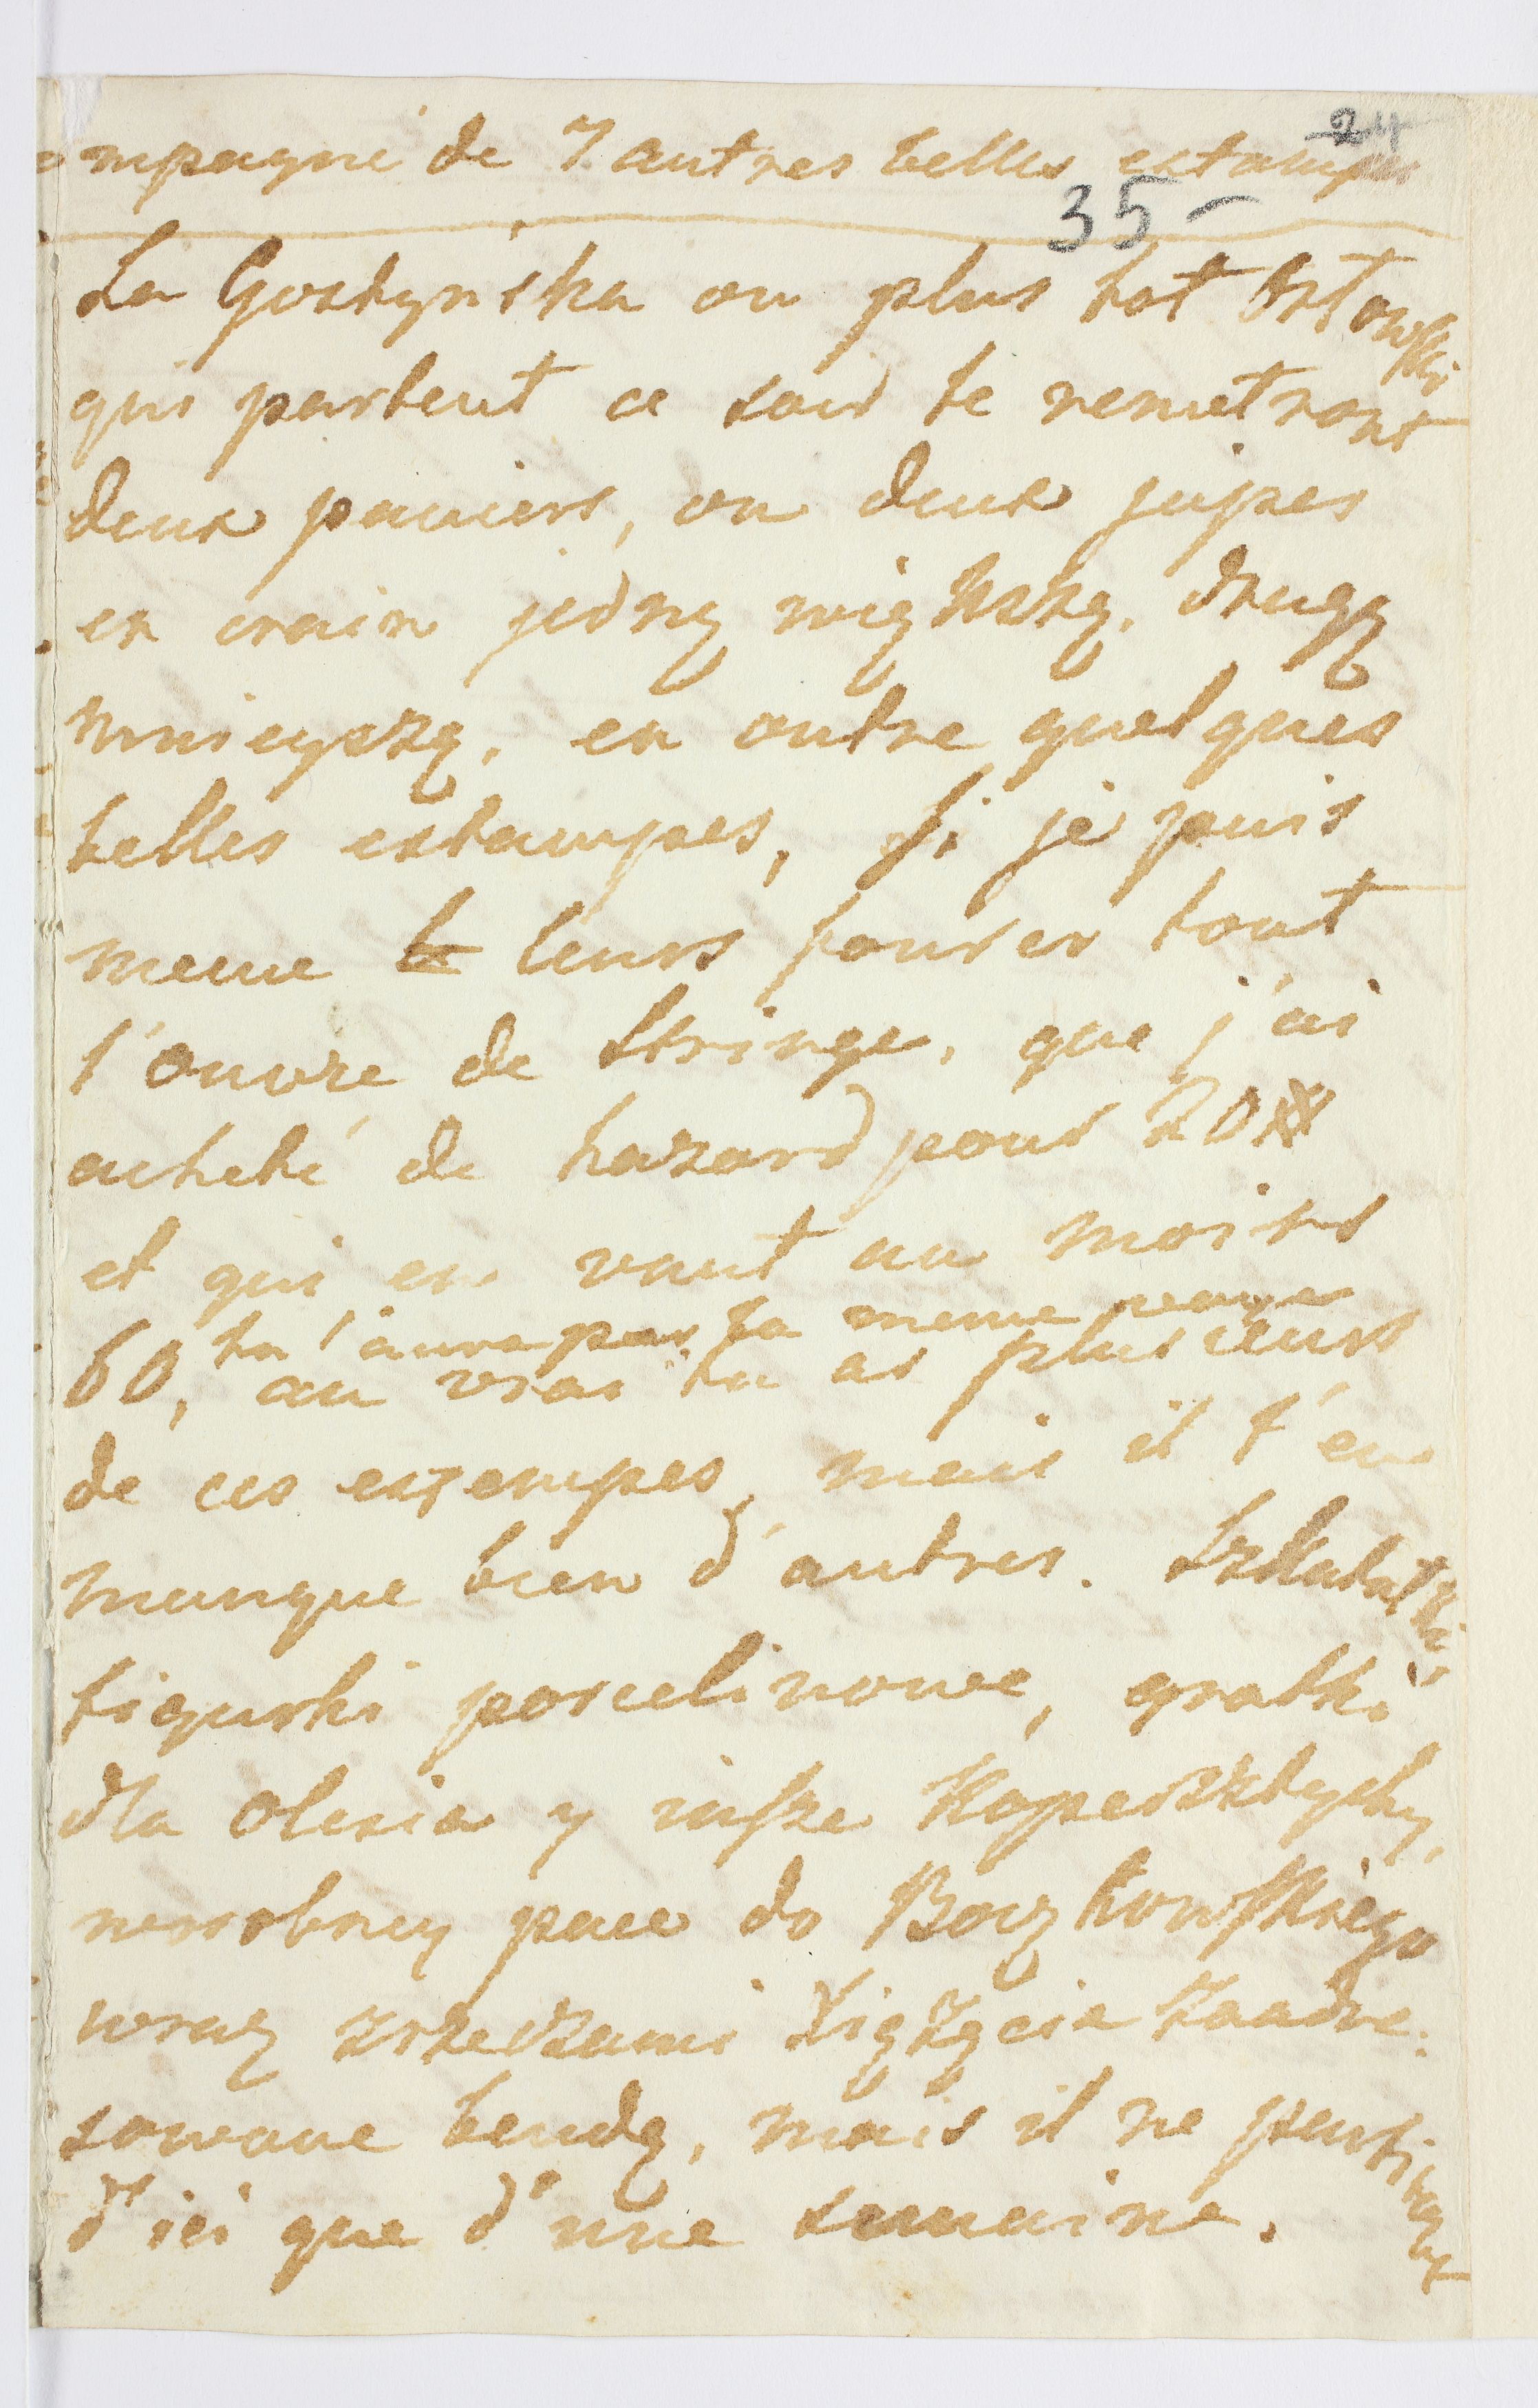 24
ompagné de 7 autres belles estampes
35 –
La Gostynska ou plus tot Ostowski
qui partent ce soir te remetront
deux paniers, ou deux jupes
en crain jedng większą, drugą
mnieyszą, en outre quelques
belles estampes, si je puis
meme leurs fourer tout
l'ouvre de Strange, que j'ai
acheté de hazard pour 20#
et qui en vaut au moins
tu l'aura par la meme
60, au vrai tu as plusieurs
de ces estempes, mais il t'en
manque bien d'autres. Szkatałki
figurki porcelinowe, gratki
dla Olesia y insze Koperszztychy,
w osobney pace do
wraz zrzedzami Xiążęcia zaadre:
sowane bendą, mais il ne part
d'ici que d'une semaine.